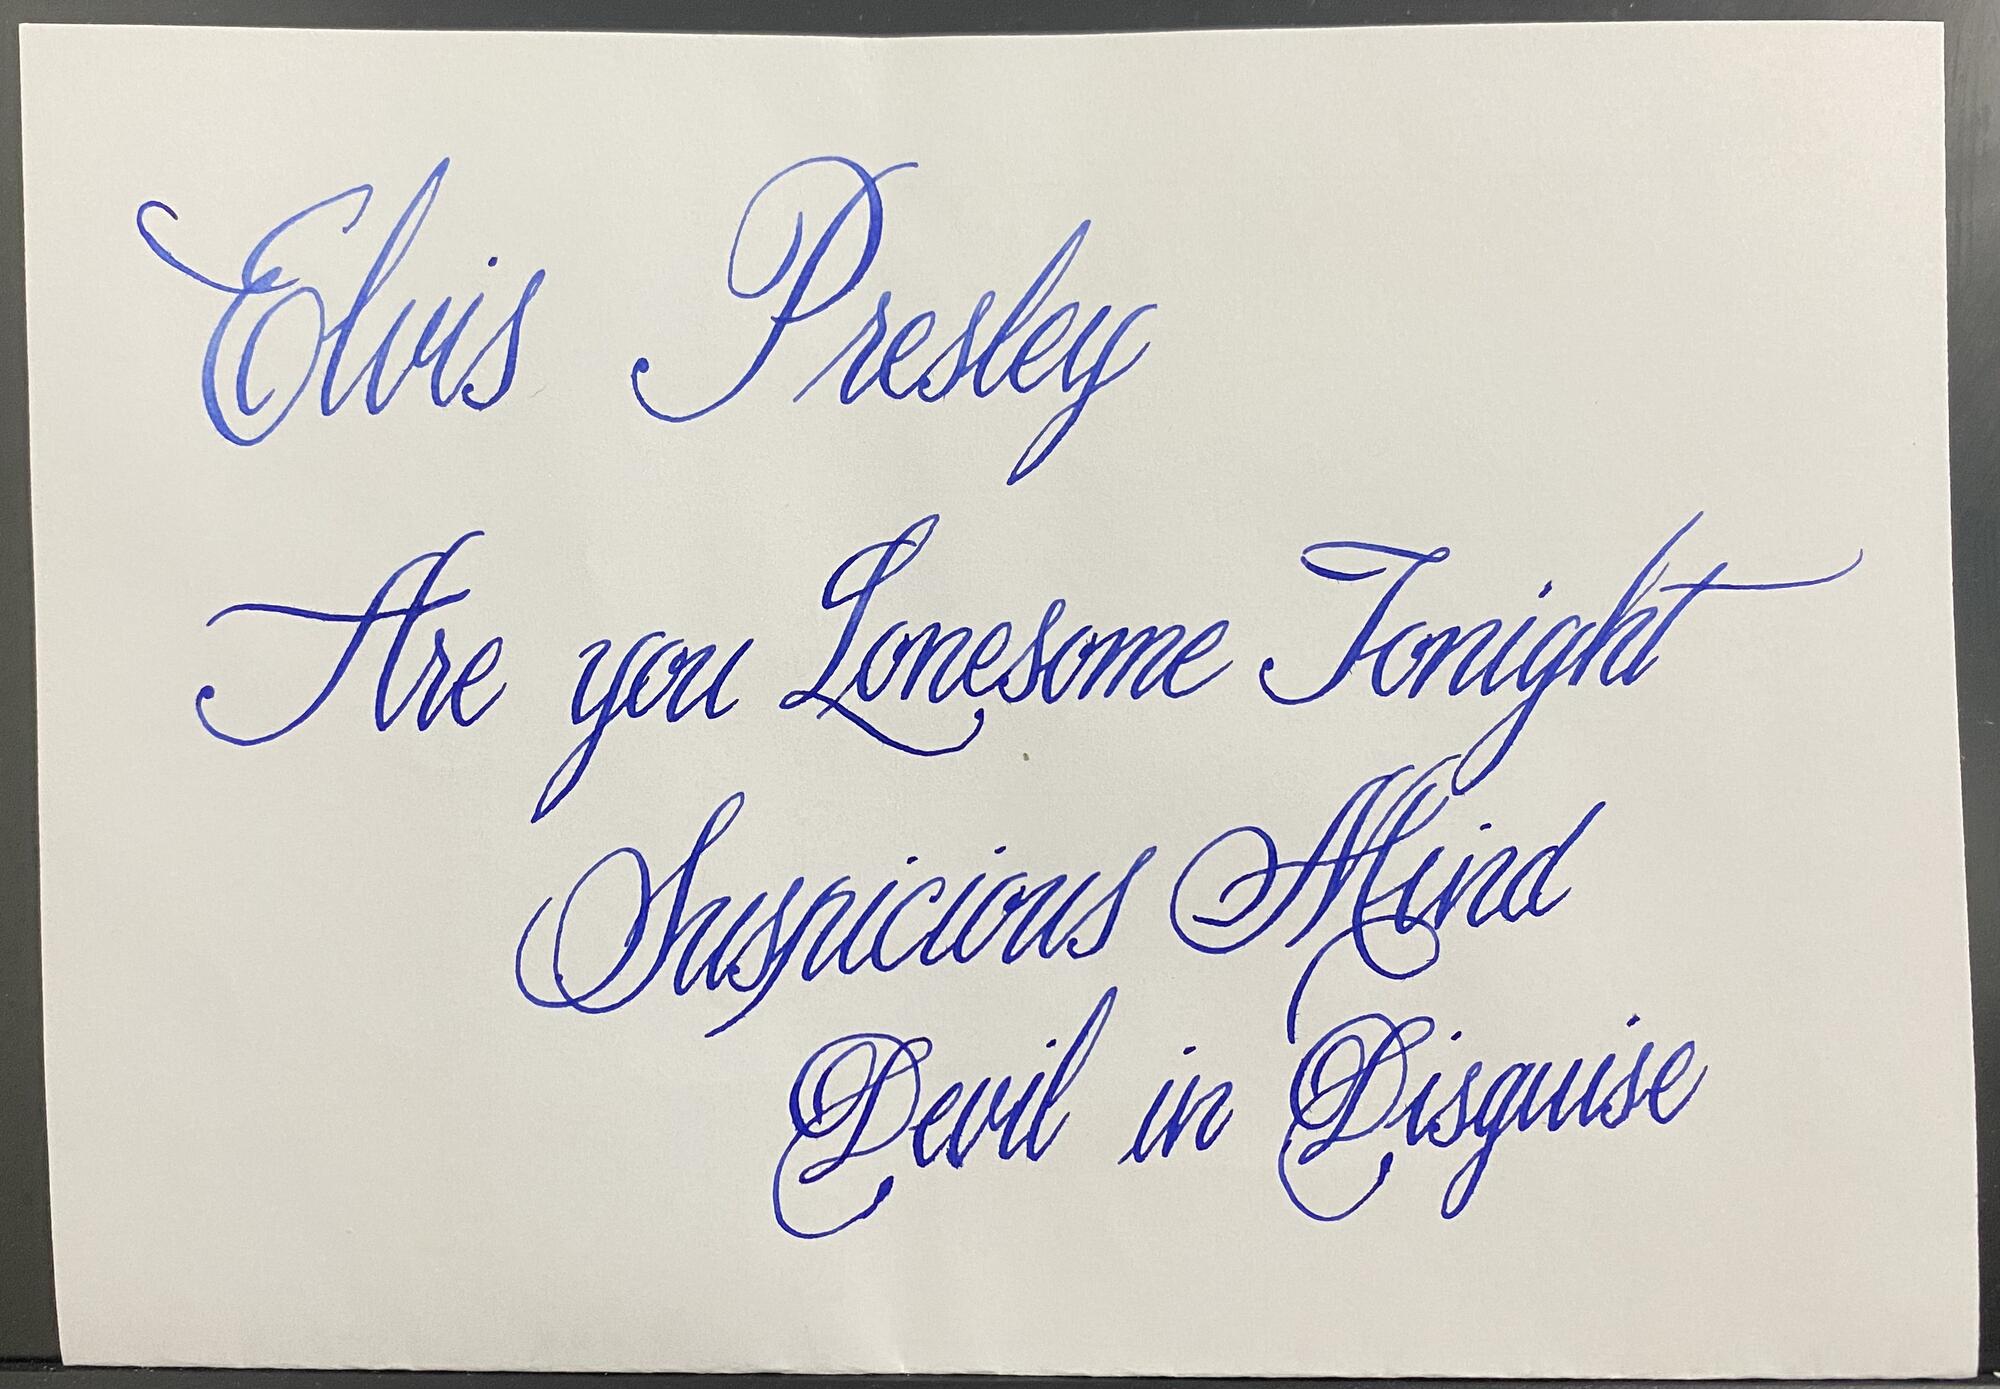 Elvis Presley
Are you Lonesome Tonight
Suspicious Mind
Devil in Disguise